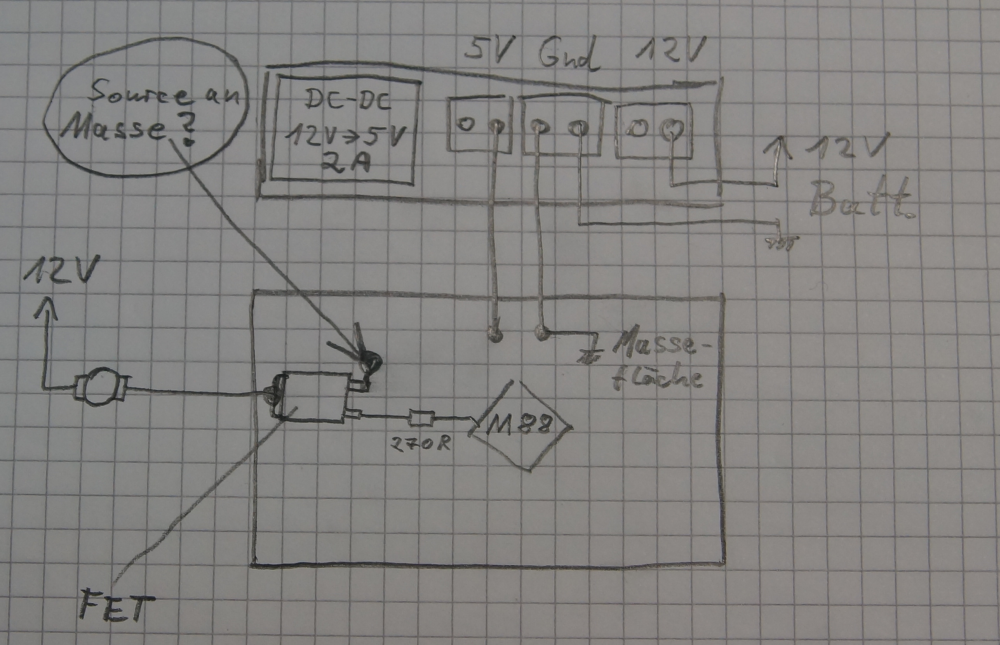 5V Gnd 12V
Source an
Masse?
DC-DC
12V→5V
2A
12V
Batt.
12V
Masse-
fläche
M88
270R
FET